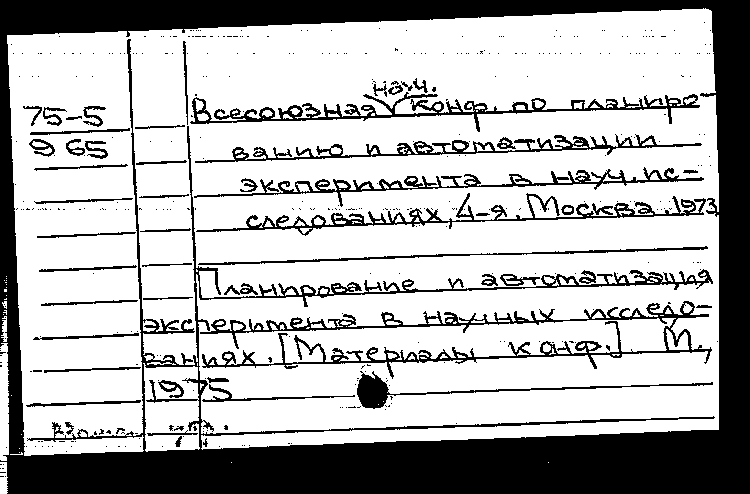 75-5
965
науч.
Всесоюзная конф. по планиро-
ванию и автоматизации
эксперимента в науч. ис-
следованиях, 4-я. Москва. 1973
Планирование и автоматизация
эксперимента в научных исследо-
ваниях. [Материалы конф.] М.,
1975